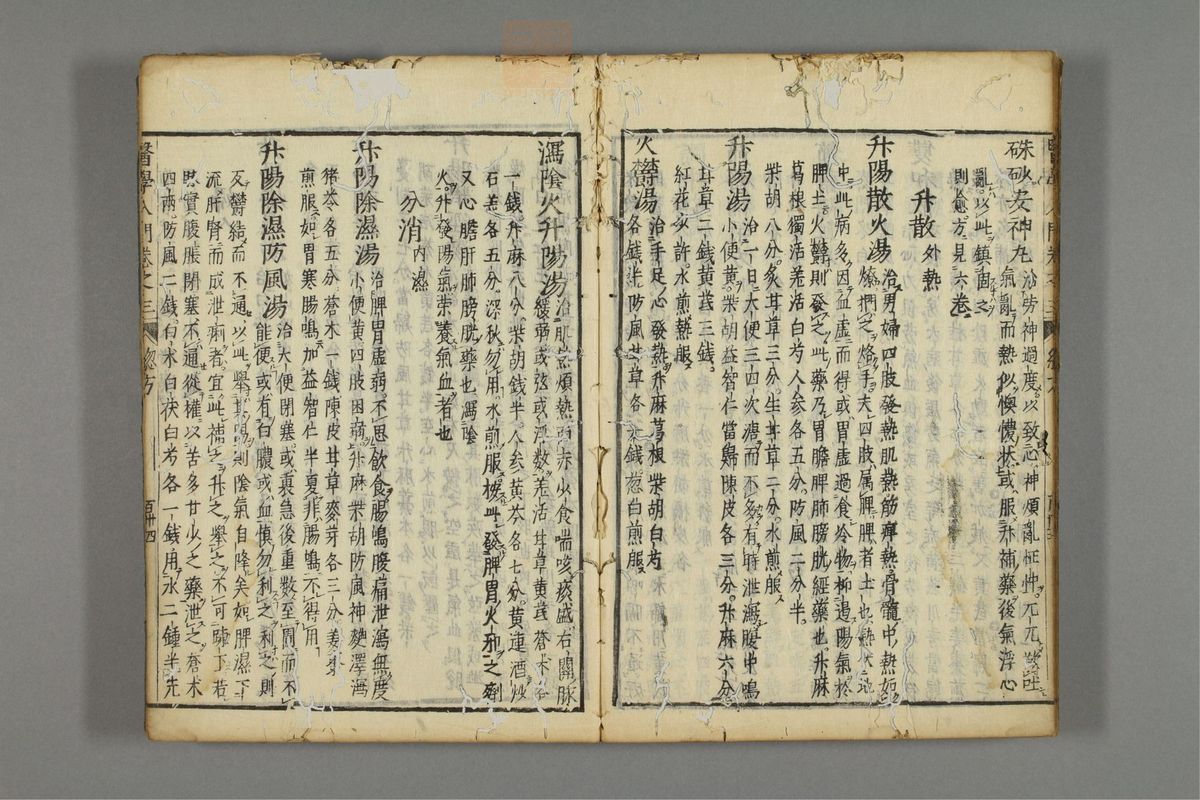 硃砂安神丸 治勞神過度以致心神煩亂怔忡兀兀欲吐
氣亂而熱似懊憹狀或服升補藥後氣浮心
亂以此鎮固之
則愈方見六卷
升散 外熱
升陽散火湯 治男婦四肢發熱肌熱筋痹熱骨髓中熱如
燎捫之烙手夫四肢属脾脾者土也熱伏地
中此病多因血虚而得或胃虚過食冷物抑遏陽氣於
脾土火欝則發之此藥乃胃膽脾肺膀胱經藥也升麻
葛根獨活羌活白芍人参各五分防風二分半
柴胡八分炙甘草三分生甘草二分水煎服
升陽湯 治一日大便三四次溏而不多有時泄瀉腹中鳴
小便黄柴胡益智仁當歸陳皮各三分升麻六分
甘草二錢黄茋三錢
紅花少許水煎熱服
火欝湯 治手足心發熱升麻葛根柴胡白芍
各一錢半防風甘草各五錢葱白煎服
瀉陰火升陽湯 治肌熱煩熱面赤少食喘咳痰盛右關脉
緩弱或弦或浮數羌活甘草黄茋蒼术各
一錢升麻八分柴胡錢半人参黄芩各七分黄連酒炒
石羔各五分深秋勿用水煎服按此發脾胃火邪之劑
又心膽肝肺膀胱藥也瀉陰
火升發陽氣榮養氣血者也
分消 内濕
升陽除濕湯 治脾胃虚弱不思飲食腸鳴腹痛泄瀉無度
小便黄四肢困弱升麻柴胡防風神麯澤瀉
猪苓各五分蒼术一錢陳皮甘草麥芽各三分姜棗
煎服如胃寒腸鳴加益智仁半夏非腸鳴不得用
升陽除濕防風湯 治大便閉塞或裏急後重数至圊而不
能便或有白膿或血慎勿利之利之則
反欝結而不通以此舉其陽則陰氣自降矣如脾濕下
流肝腎而成泄痢者宜此補之升之舉之不可踈下若
脾實腹脹閉塞不通從權以苦多甘少之藥泄之蒼术
四兩防風二錢白术白茯白芍各一錢用水二鍾半先
醫學入門卷之三 總方 百卅四